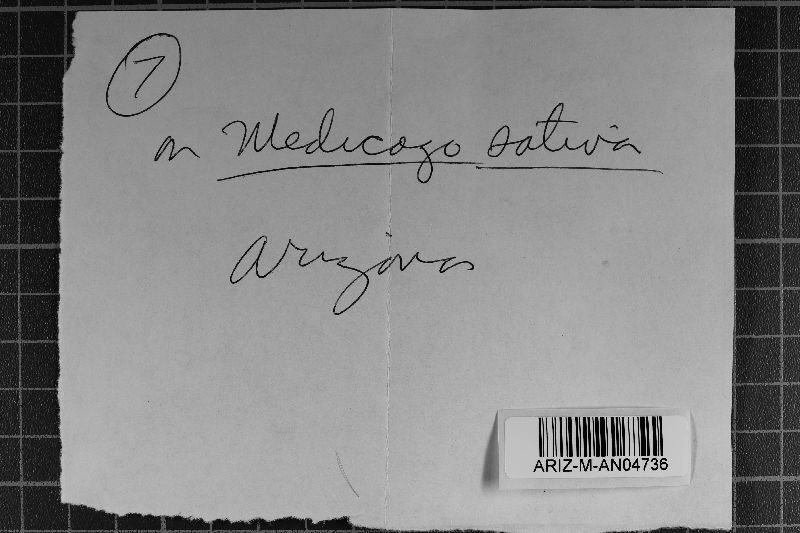 7
on Medicago sativa
Arizona
ARIZ-M-AN04736